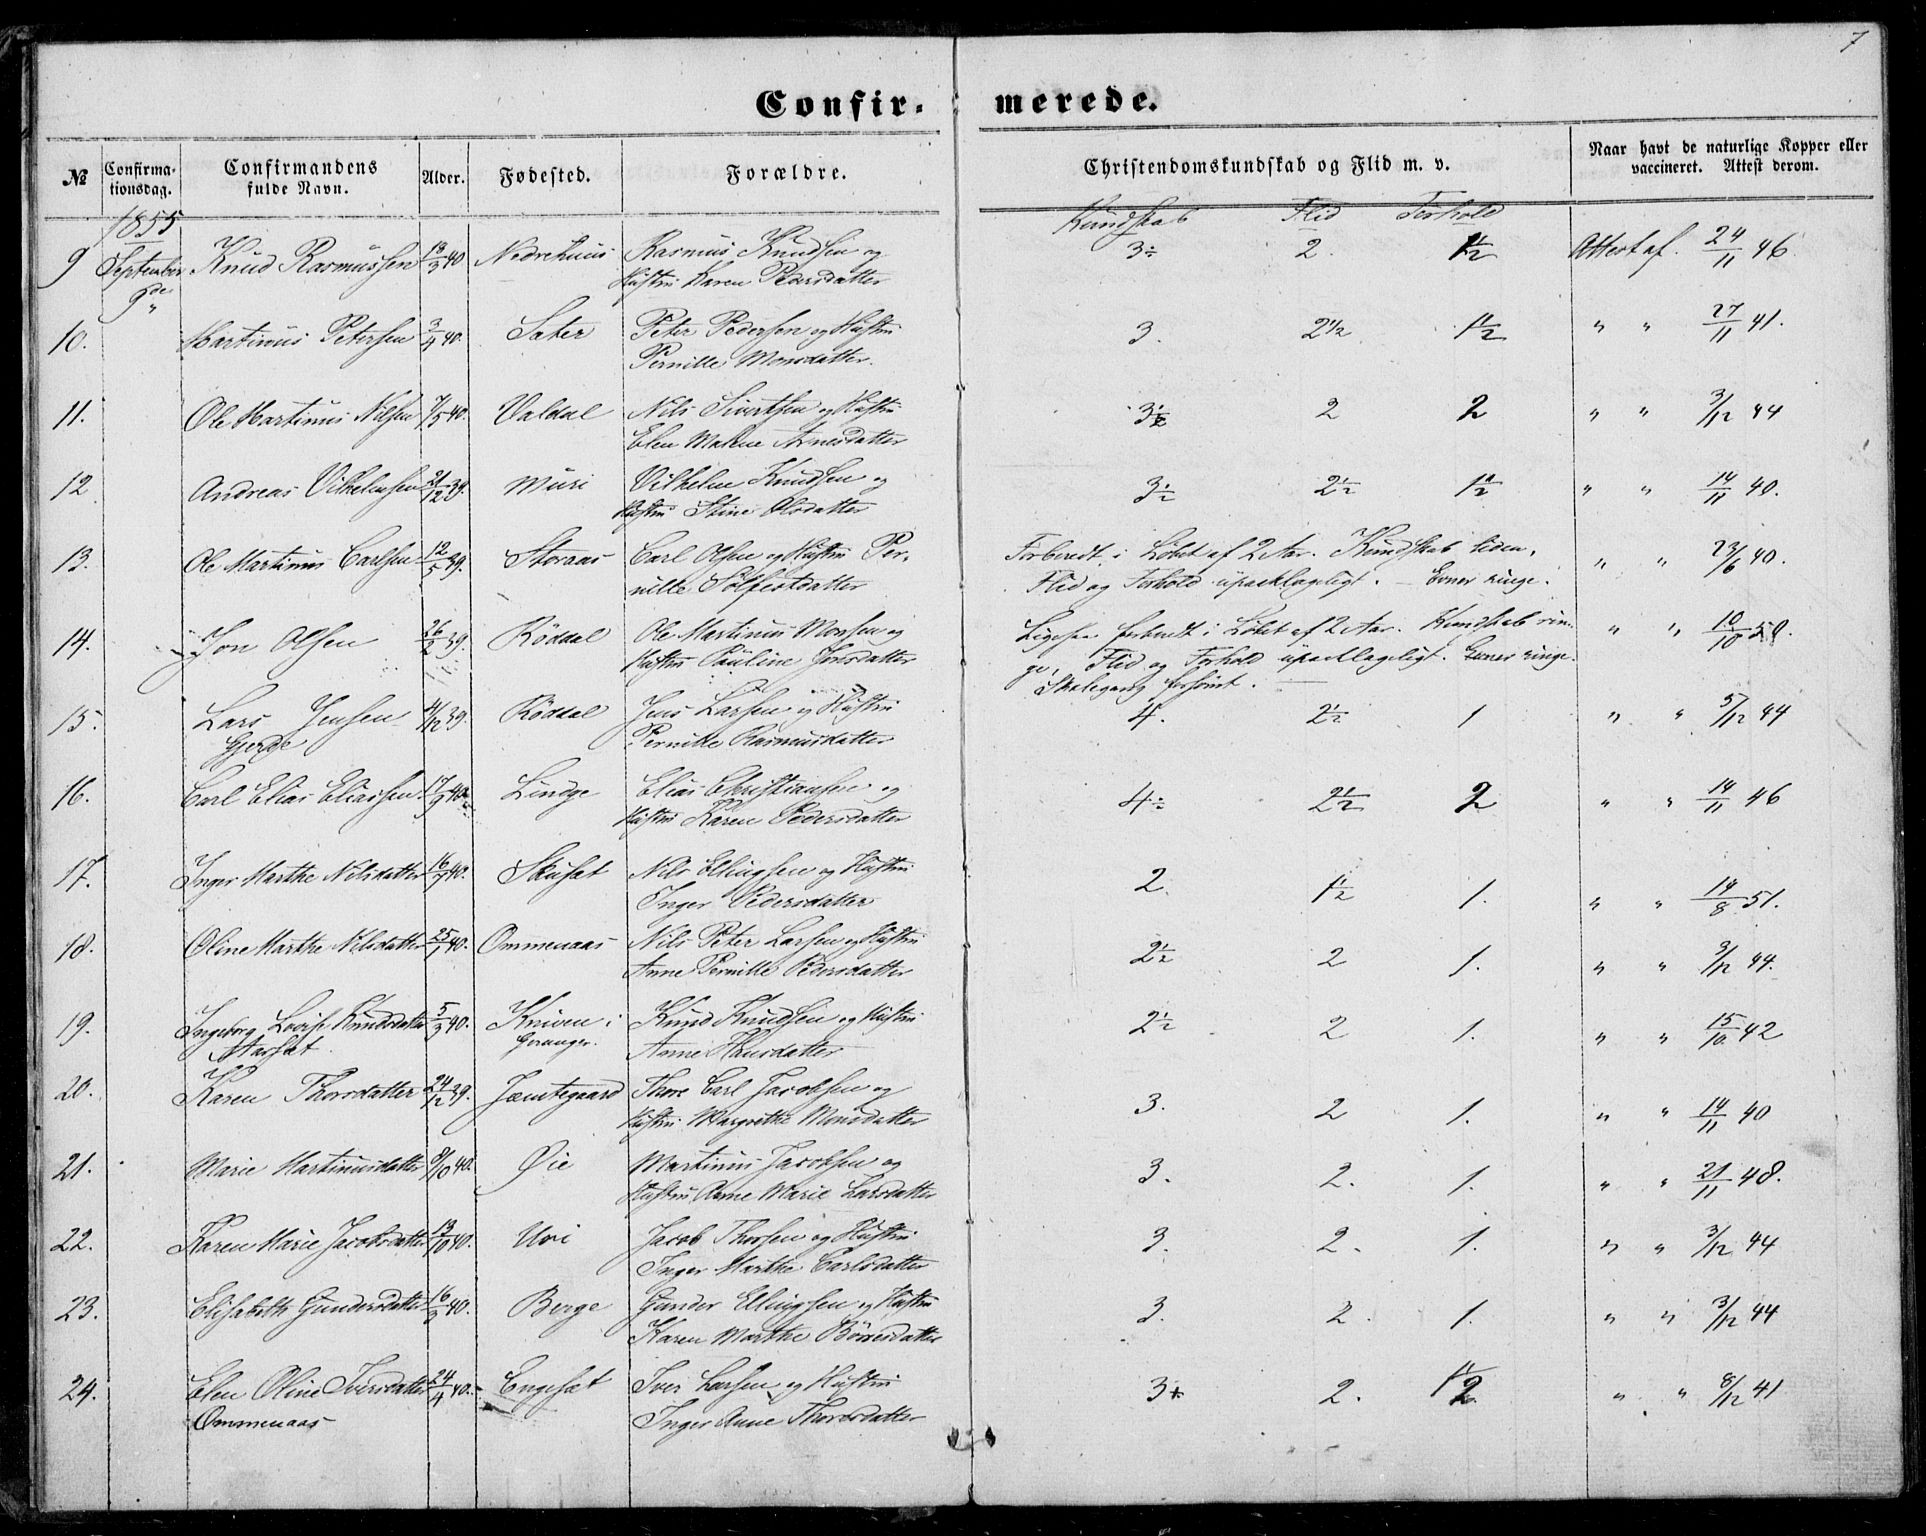 7
Confir- merede.
№ Confirma-tionsdag. Confirmandens fulde Navn. Alder. Fødested. Forældre. Christendomskundskab og Flid m. v. Naar havt de naturlige Kopper eller vaccineret. Attest derom.
1855 Kundskab Flid Forhold
9 September 9de Knud Rasmussen 13/3 40 Nedrehuus Rasmus Knudsen og 3÷ 2. 1½ Attest af. 24/11 46.
Hustru Karen Pedersdatter
10. Martinus Petersen 3/4 40. Sater Peter Pedersen og Hustru 3. 2½ 1½ " " 27/11 41.
Pernille Monsdatter.
11. Ole Martinus Nilsen 7/5 40. Valdal Nils Sivertsen og Hustru 3½ 2 2 " " 3/12 44
Elen Malene Arnesdatter
12 Andreas Vilhelmsen 21/12 39. Muri Vilhelm Knudsen og 3½ 2½ 1½ " " 14/11 40.
Hustru Stine Olsdatter
13. Ole Martinus Carlsen 12/5 39. Storaas Carl Olsen og Hustru Per- Forberedt i Løbet af 2 Aar. Kundskab liden, " " 23/6 40.
nille Sølfestdatter Flid og Forhold upaaklageligt. — Evner ringe.
14. Jon Olsen 26/2 39. Røddal Ole Martinus Monsen og Ligesaa forberedt i Løbet af 2 Aar. Kundskab rin- " " 10/10 50.
Hustru Pauline Jonsdatter ge, Flid og Forhold upaaklageligt. Evner ringe.
Skolegang forsømt.
15. Lars Jensen 4/12 39. Røddal Jens Larsen og Hustru 4. 2½ 1 " " 5/12 44
Gjerde Pernille Rasmusdatter
16. Carl Elias Eliassen 17/9 40. Lindge Elias Christiansen og 4÷ 2½ 2 " " 14/11 46
Hustru Karen Pedersdatter
17. Inger Marthe Nilsdatter 16/7 40. Skusæt Nils Ellingsen og Hustru 2. 1½ 1. " " 14/8 51.
Inger Pedersdatter
18. Oline Marthe Nilsdatter 25/1 40. Ommenaas Nils Peter Larsen og Hustru 2½ 2 1. " " 3/12 44.
Anne Pernille Pedersdatter
19. Ingeborg Lovise Knudsdatter 5/3 40. Kniven i Knud Knudsen og Hustru 2½ 2 1. " " 15/10 42
Aarsæt. Geranger. Anne Hansdatter
20. Karen Thorsdatter 24/12 39. Jæmtegaard Thore Carl Jacobsen og 3. 2 1. " " 14/11 40
Hustru Margrethe Monsdatter
21. Marie Martinusdatter 9/10 40. Øie Martinus Jacobsen og 3. 2. 1. " " 21/11 48.
Hustru Anne Marie Larsdatter
22. Karen Marie Jacobsdatter 13/10 40. Uri Jacob Thorsen og Hustru 3. 2. 1. " " 3/12 44
Inger Marthe Carlsdatter
23. Elisabeth Gundersdatter 16/3 40. Berge Gunder Ellingsen og Hustru 3. 2. 1. " " 3/12 44
Karen Marthe
24. Elen Oline Iversdatter 24/4 40. Engesæt Iver Larsen og Hustru 3+ 2. 1½ " " 8/12 41
Ommenaas Inger Anne Thoresdatter